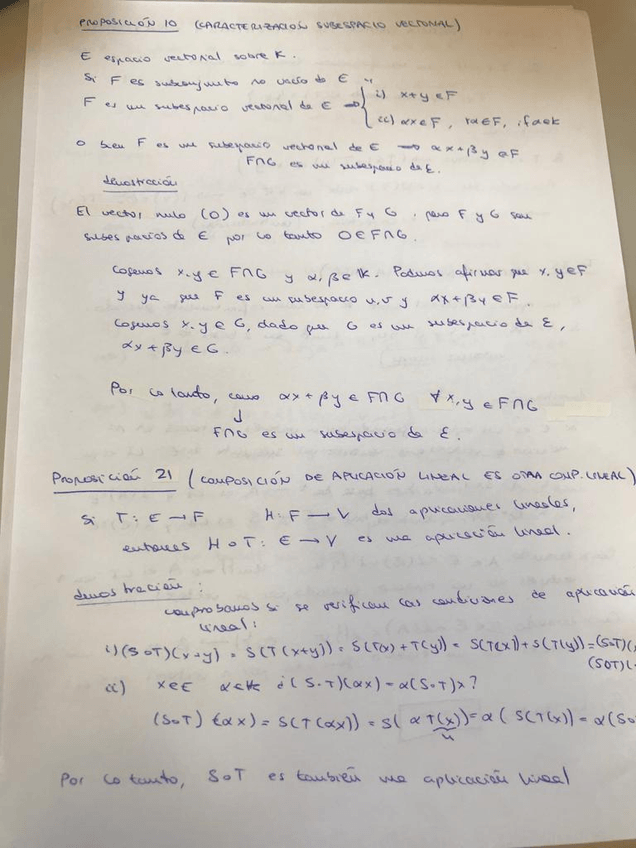 PROPOSICIÓN 10 (CARACTERIZACIÓN SUBESPACIO VECTORIAL)
E espacio vectorial sobre K.
Si F es subconjunto no vacío de E
F es un subespacio vectorial de E → { i) x+y ∈ F
ii) αx ∈ F,
o bien F es un subespacio vectorial de E → αx + βy ∈ F
F∩G es un subespacio de E.
demostración
El vector nulo (0) es un vector de F y G, pero F y G son
subespacios de E por lo tanto 0 ∈ F∩G.
Cogemos x,y ∈ F∩G y α, β ∈ K. Podemos afirmar que x,y ∈ F
y ya que F es un subespacio αx + βy ∈ F.
Cogemos x,y ∈ G, dado que G es un subespacio de E,
αx + βy ∈ G.
Por lo tanto, como αx + βy ∈ F∩G ∀x,y ∈ F∩G
↓
F∩G es un subespacio de E.
Proposición 21 (COMPOSICIÓN DE APLICACIÓN LINEAL ES OTRA COMP. LINEAL)
Si T: E → F H: F → V dos aplicaciones lineales,
entonces H∘T: E → V es una aplicación lineal.
demostración:
comprobamos si se verifican las condiciones de aplicación
lineal:
i) (S∘T)(x+y) = S(T(x+y)) = S(T(x)+T(y)) = S(T(x))+S(T(y)) = (S∘T)(
(S∘T)(
ii) x∈E α∈K ¿(S∘T)(αx) = α(S∘T)x?
(S∘T)(αx) = S(T(αx)) = S(αT(x)) = α(S(T(x)) = α(So
u
Por lo tanto, S∘T es también una aplicación lineal